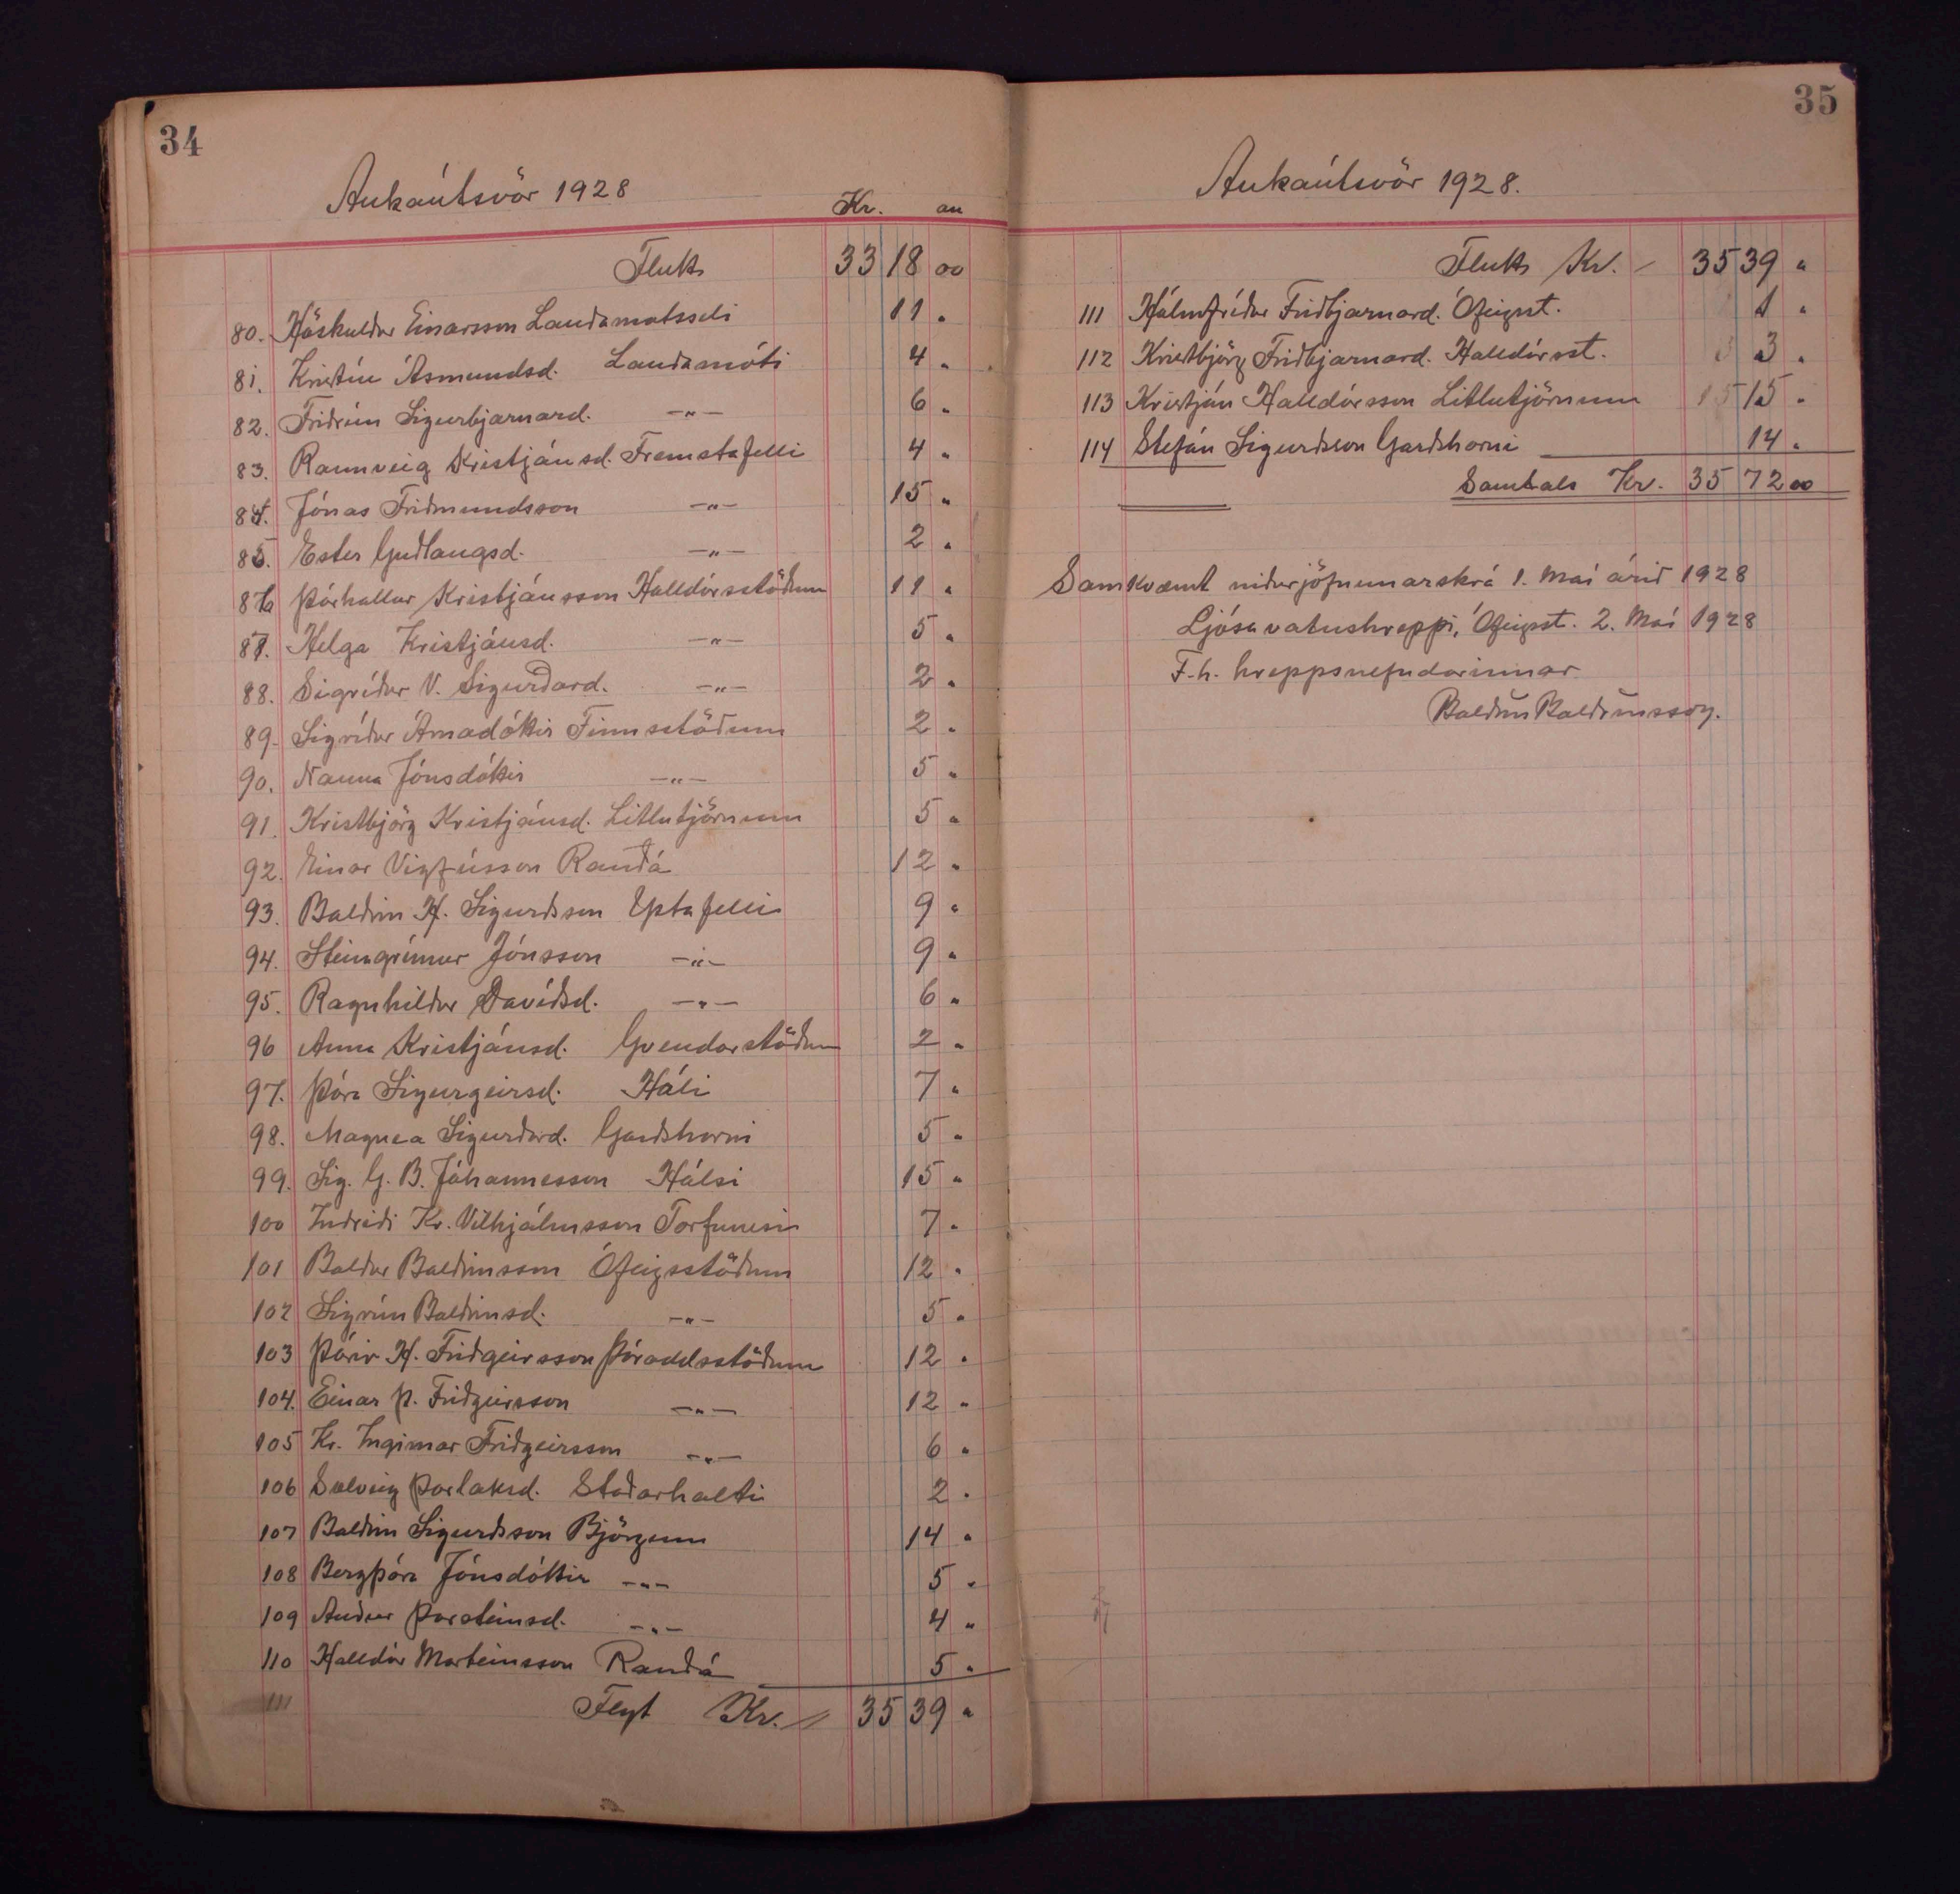 34
Aukaútsvör 1928
Kr. au
Flutt 3318 00
80. Höskuldur Einarsson Landamotsseli 11 "
81. Kristín Ásmundsd. Landamóti 4 "
82. Fridrún Sigurbjarnard. —"— 6 "
83. Rannveig Kristjánsd. Fremstafelli 4 "
84. Jónas Fridmundsson —"— 15 "
85. Ester Gudlaugsd. —"— 2 "
86 Þórhallur Kristjánsson Halldórsstödum 11 "
87. Helga Kristjánsd. —"— 5 "
88. Sigrídur V. Sigurdard. —"— 2 "
89. Sigrídur Árnadóttir Finnsstödum 2 "
90. Nanna Jónsdóttir —"— 5 "
91. Kristbjörg Kristjánsd. Litlutjörnum 5 "
92. Einar Vigfússon Raudá 12 "
93. Baldvin H. Sigurdsson Yptafelli 9 "
94. Steingrímur Jónsson —"— 9 "
95. Ragnhildur Davídsd. —"— 6 "
96 Anna Kristjánsd. Gvendarstödum 2 "
97. Þóra Sigurgeirsd. Háli 7 "
98. Magnea Sigurdard. Gardshorni 5 "
99. Sig. G. B. Jóhannesson Hálsi 15 "
100 Indridi Kr. Vilhjálmsson Torfunesi 7 "
101 Baldur Baldvinsson Ófeigsstödum 12 "
102 Sigrún Baldvinsd. —"— 5 "
103 Þórir H. Fridgeirsson Þóroddsstödum 12 "
104. Einar Þ. Fridgeirsson —"— 12 "
105 Kr. Ingimar Fridgeirsson —"— 6 "
106 Solveig Þorlaksd. Stadarholti 2 "
107 Baldvin Sigurdsson Björgum 14 "
108 Bergþóra Jónsdóttir —"— 5 "
109 Audur Þorsteinsd. —"— 4 "
110 Halldór Marteinsson Raudá 5 "
111
Flyt Kr. 3539 "
35
Aukaútsvör 1928.
Flutt Kr. 3539 "
111 Hólmfrídur Fridbjarnard. Ófeigsst. 1 "
112 Kristbjörg Fridbjarnard. Halldórsst. 3 "
113 Kristján Halldórsson Litlutjörnum 15 "
114 Stefán Sigurdsson Gardshorni 14 "
Samtals Kr. 3572 00
Samkvæmt nidurjöfnunarskrá 1. maí árid 1928
Ljósavatnshreppi, Ófeigsst. 2. Maí 1928
F.h. hreppsnefndarinnar
Baldvin Baldvinsson.